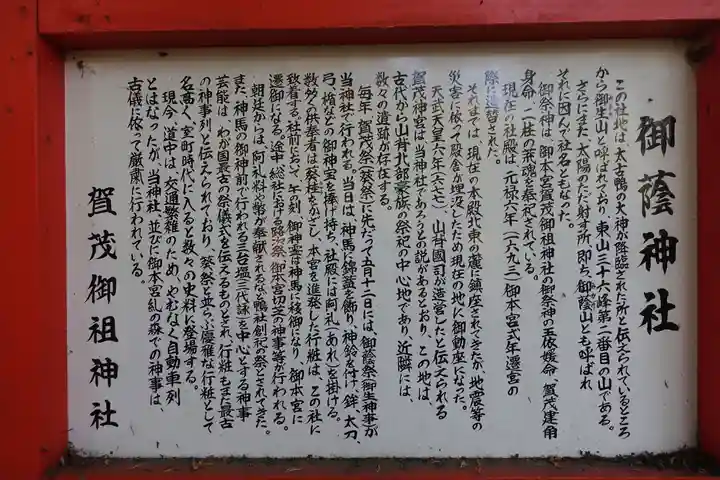 御蔭神社
この社地は、太古鴨の大神が降臨された所と伝えられているところ
から御生山と呼ばれており、東山三十六峰第二番目の山である。
さらにまた太陽のただ射す所、即ち、御蔭山とも呼ばれ、
それに因んで社名ともなった。
御祭神は、御本宮賀茂御祖神社の御祭神の玉依媛命、賀茂建角
身命、二柱の荒魂を奉祀されている。
現在の社殿は、元禄六年(一六九三)御本宮式年遷宮の
際に造替された。
それまでは、現在の本殿北東の麓に鎮座されてきたが、地震等の
災害に依って殿舎が埋没したため現在の地に御動座になった。
天武天皇六年(六七七)、山背國司が造営したと伝えられる
賀茂神宮は当神社であろうとの説があるとおり、この地は、
古代から山背北部豪族の祭祀の中心地であり、近隣には、
数々の遺跡が存在する。
毎年、賀茂祭(葵祭)に先だって五月十二日には、御蔭祭(御生神事)が
当神社で行われる。当日は、神馬に錦蓋を飾り、神鈴を付け、鉾、太刀、
弓、楯などの御神宝を捧げ持ち、社殿には阿礼(あれ)を掛ける。
数多の供奉者は葵桂をかざし、本宮を進発した行粧は、この社に
致着する。社前において、午の刻、御神霊は神馬に移御になり、御本宮に
還御になる。途中、総社における路次祭、御本宮切芝の神事等が行われる。
朝廷からは、阿礼料の幣が奉献されるなど鴨社創祀の祭とされてきた。
また、神馬の御神前で行われる三台塩三代詠を中心とする神事
芸能は、わが国最古の祭儀式を伝えるものとされ、行粧もまた最古
の神事列と伝えられており、葵祭と並らぶ優雅な行粧として
名高く、室町時代に入ると数々の史料に登場する。
現今、道中は、交通繁雑のため、やむなく自動車列
とはなったが、当神社、並びに御本宮糺の森での神事は、
古儀に依って厳粛に行われている。
賀茂御祖神社